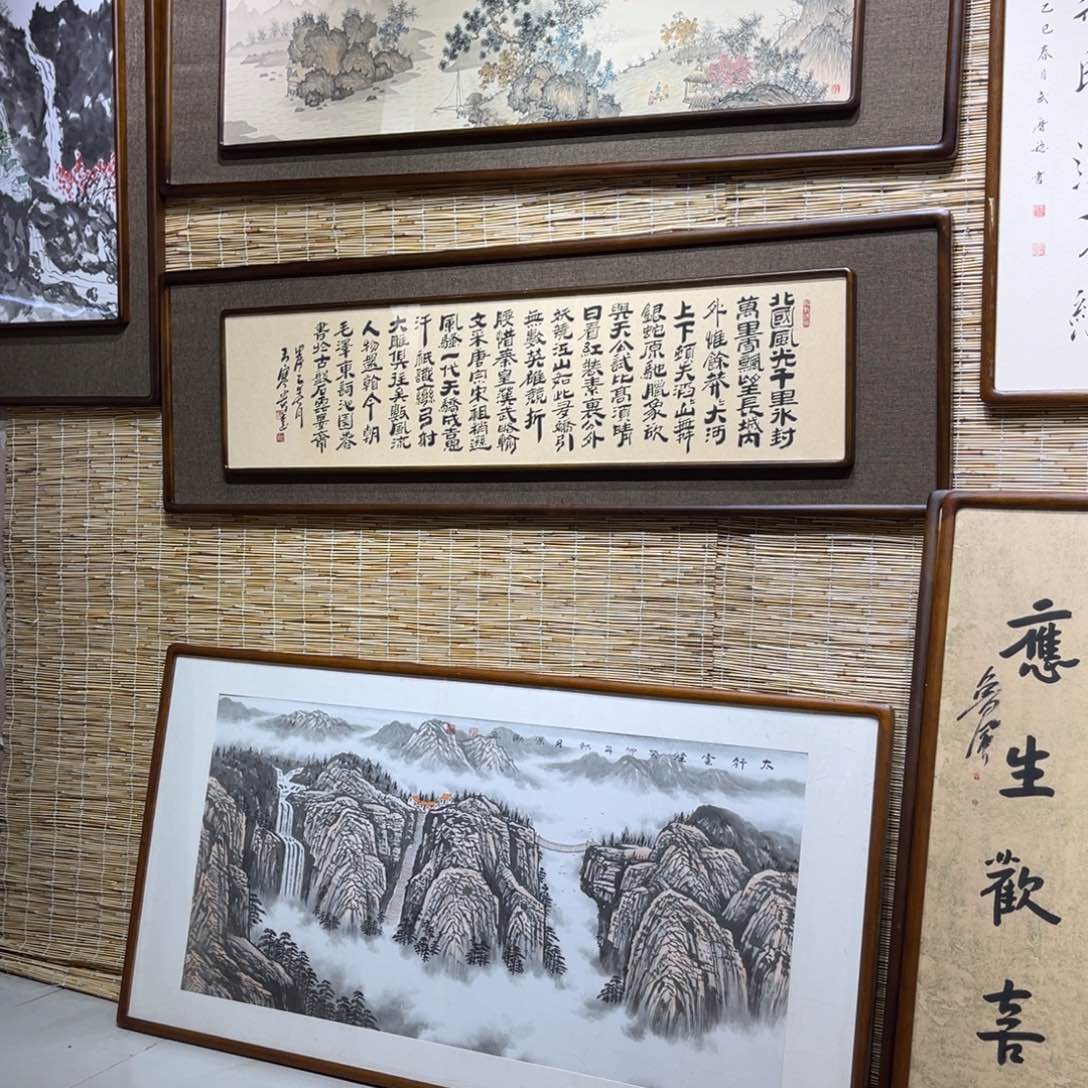 乙巳春月
書
北國風光千里冰封
萬里雪飄望長城內
外惟餘莽〻大河
上下頓失滔〻山舞
銀蛇原馳臘象欲
與天公試比高須晴
日看紅裝素裹分外
妖嬈江山如此多嬌引
無數英雄競折
腰惜秦皇漢武略輸
文采唐宗宋祖稍遜
風騷一代天驕成吉思
汗祇識彎弓射
大雕俱往矣數風流
人物還看今朝
毛澤東詞沁園春
太行雲
應生歡喜